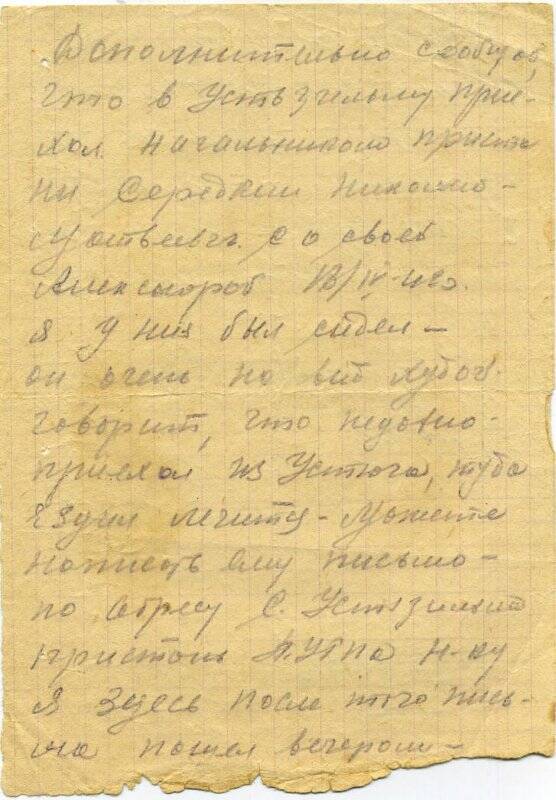 Дополнительно сообщаю,
что в Устьзильму прие-
хал начальником приста
ни Середкин Николай
Матвеевич с о своей
18/IV-42г.
я у них был сидел –
он очень на вид худой.
говорит, что недавно-
приехал из Устюга, туда
ездил лечится – Можете
написать ему письмо –
по адресу С. Устьзильма
пристань Н-ку
я здесь после того пись-
ма пошел вечером –